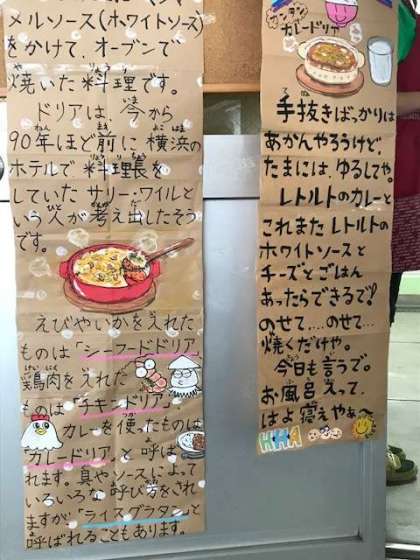 メルソース(ホワイトソース)
をかけて、オーブンで
焼いた料理です。
ドリアは、今から
90年ほど前に横浜の
ホテルで料理長を
していたサリー・ワイルと
いう人が考え出したそう
です。
えびやいかを入れた
ものは「シーフードドリア」
鶏肉を入れた
ものは「チキンドリア」
カレーを使ったものは
「カレードリア」と呼ば
れます。具やソースによって
いろいろな呼び方をされ
ますが、「ライスグラタン」と
呼ばれることもあります。
カンタン
カレードリア
手抜きばっかりは
あかんやろうけど、
たまには、ゆるしてや。
レトルトのカレーと
これまたレトルトの
ホワイトソースと
チーズとごはん
あったらできるで!
のせて…のせて…
焼くだけや。
今日も言うで。
お風呂入って、
はよ寝えやぁ〜